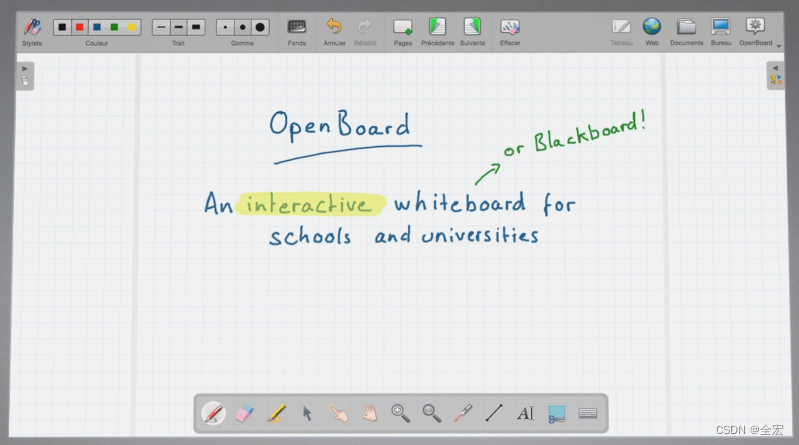 Stylets
Couleur
Trait
Gomme
Fonds
Annuler
Rétablir
Pages
Précédente
Suivante
Effacer
Tableau
Web
Documents
Bureau
OpenBoard
OpenBoard
or Blackboard!
An interactive whiteboard for
schools and universities
AI
CSDN @全宏